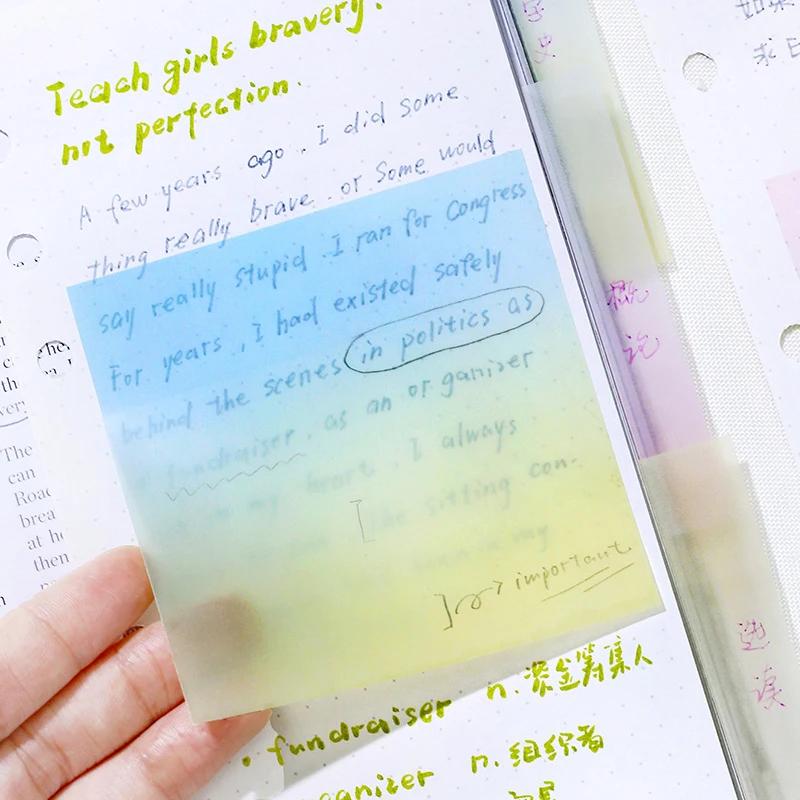 Teach girls bravery.
not perfection.
A few years ago. I did some
thing really brave. or some would
say really stupid. I ran for congress
For years, I had existed safely
behind the scenes in politics as
fundraiser, as an organizer
in my heart. I always
the sitting con-
in my
important
fundraiser n. 资金筹集人
organizer n. 组织者
学史
概论
选读
如果
求
The
can
Road
brea
at ho
then